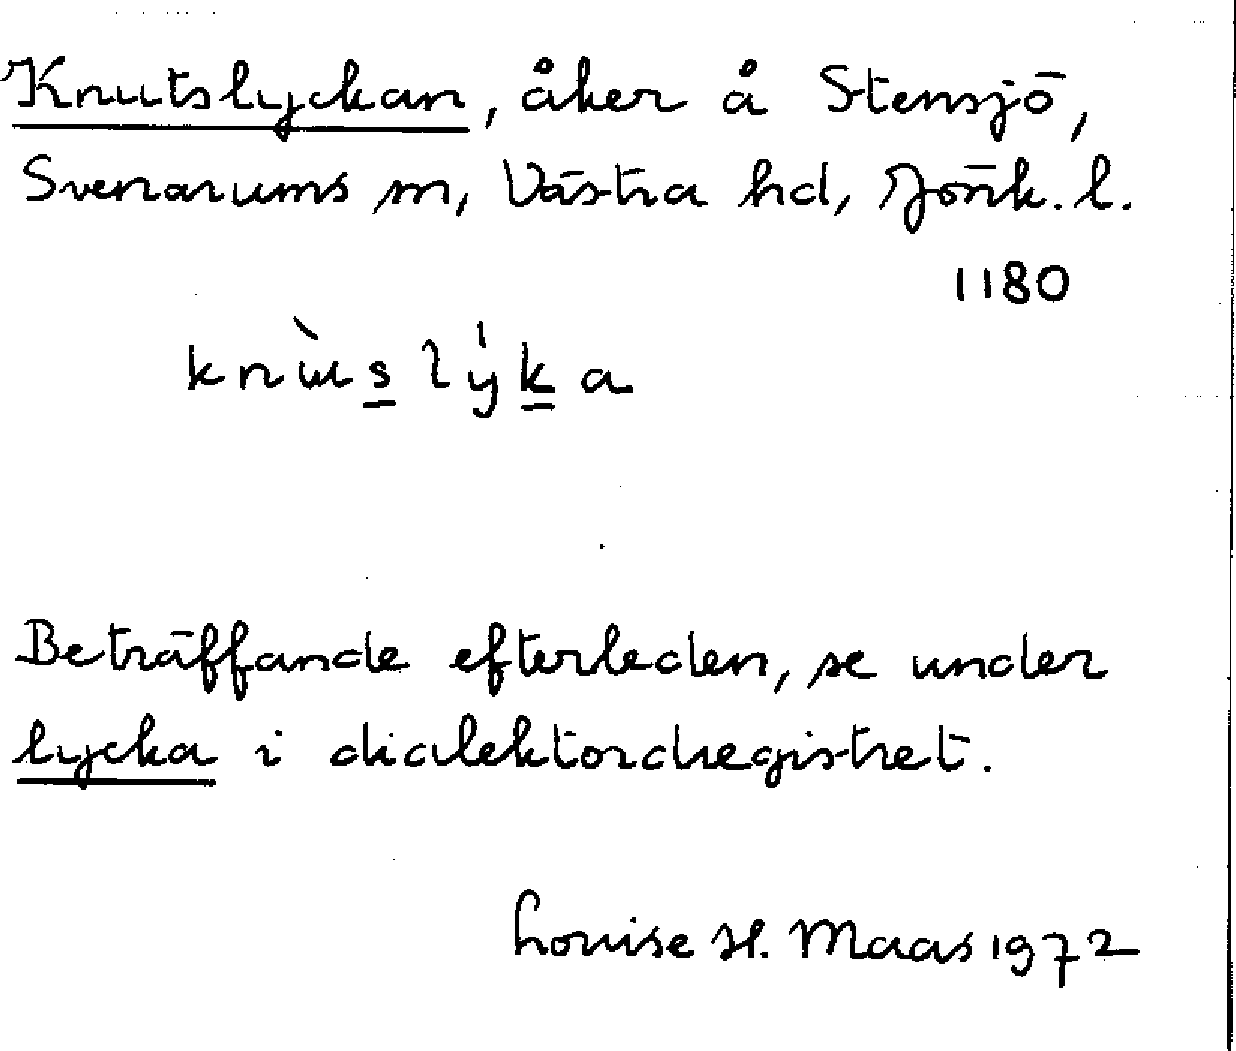 Knutslyckan, åker å Stensjö,
Svenarums sn, Västra hd, Jönk. l.
1180
knùslýka
Beträffande efterleden, se under
lycka i dialektordregistret.
Louise H. Maas 1972